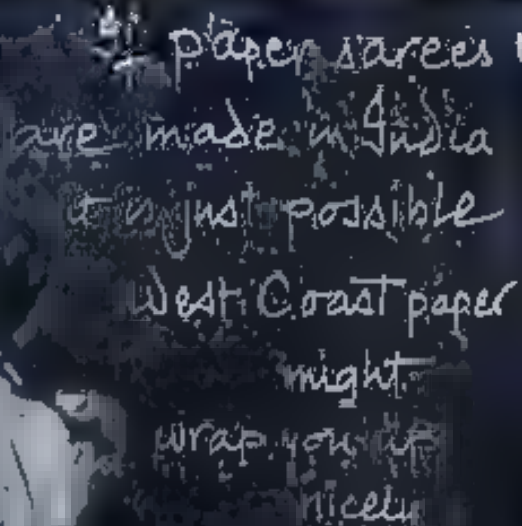 paper sarees
are made in India
it is just possible
West Coast paper
might
wrap you up
nicely